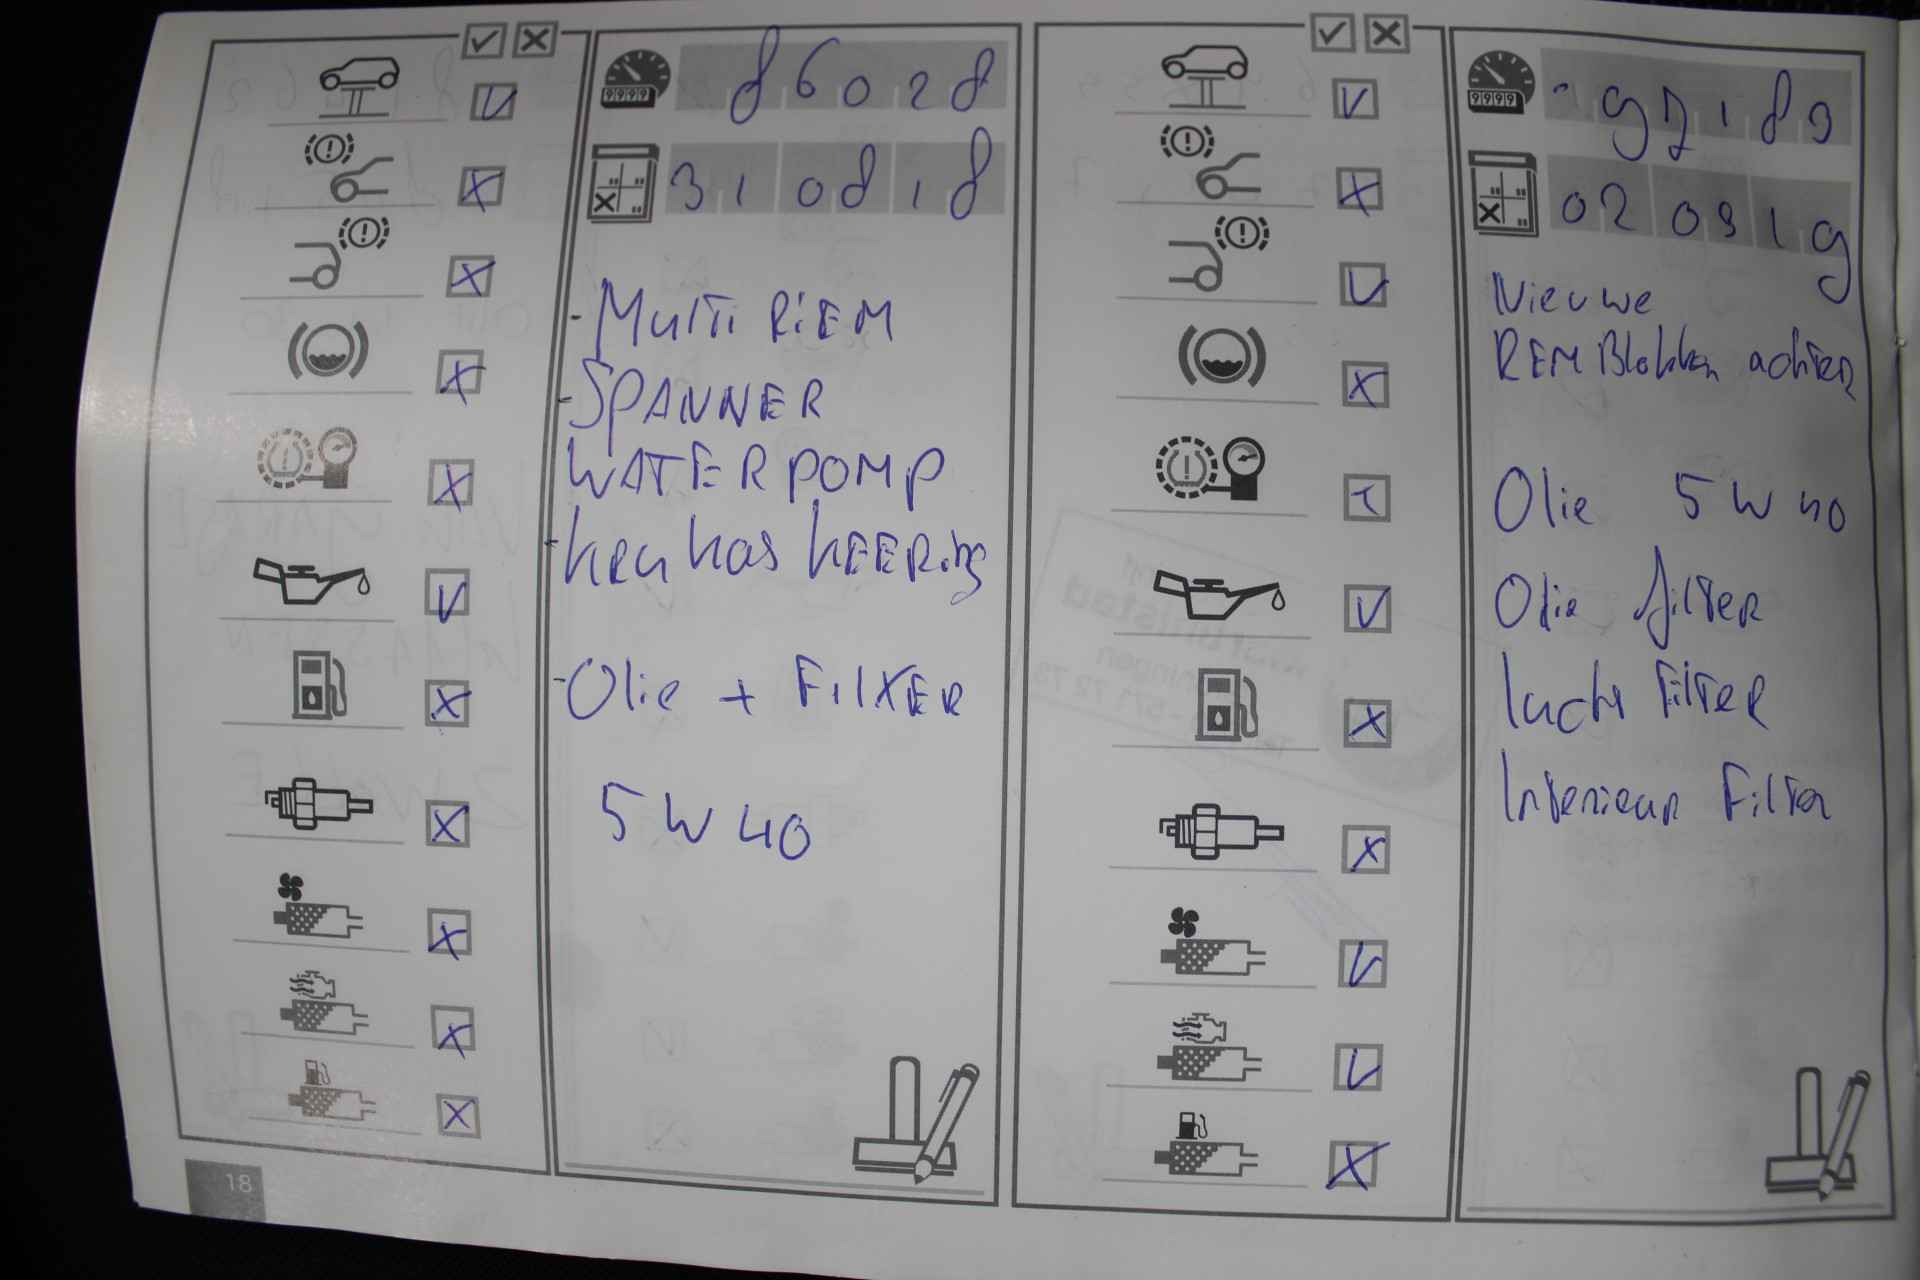 9999
86028
310818
- Multi RiEM
- SPANNER
WATERPOMP
- KRUKAS KEERing
- Olie + FILTER
5 W 40
18
9999
97189
020919
Nieuwe
REM Blokken achter
Olie 5 W 40
Olie filter
lucht Filter
Interieur Filter